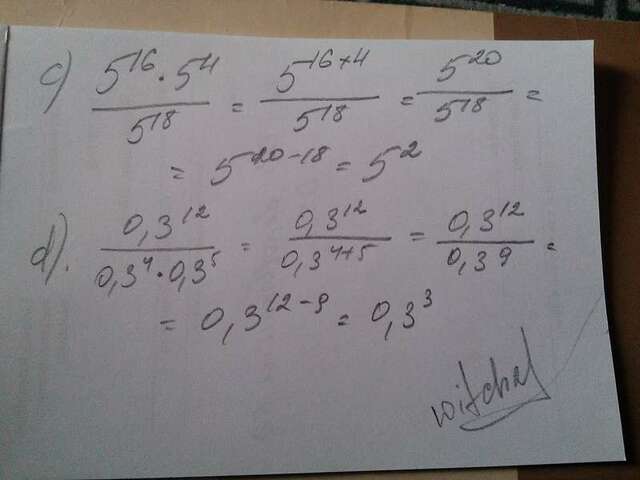 c) 5^16 · 5^4 / 5^18 = 5^16+4 / 5^18 = 5^20 / 5^18 =
= 5^20-18 = 5^2
d). 0,3^12 / 0,3^4 · 0,3^5 = 0,3^12 / 0,3^4+5 = 0,3^12 / 0,3^9 =
= 0,3^12-9 = 0,3^3
witchal